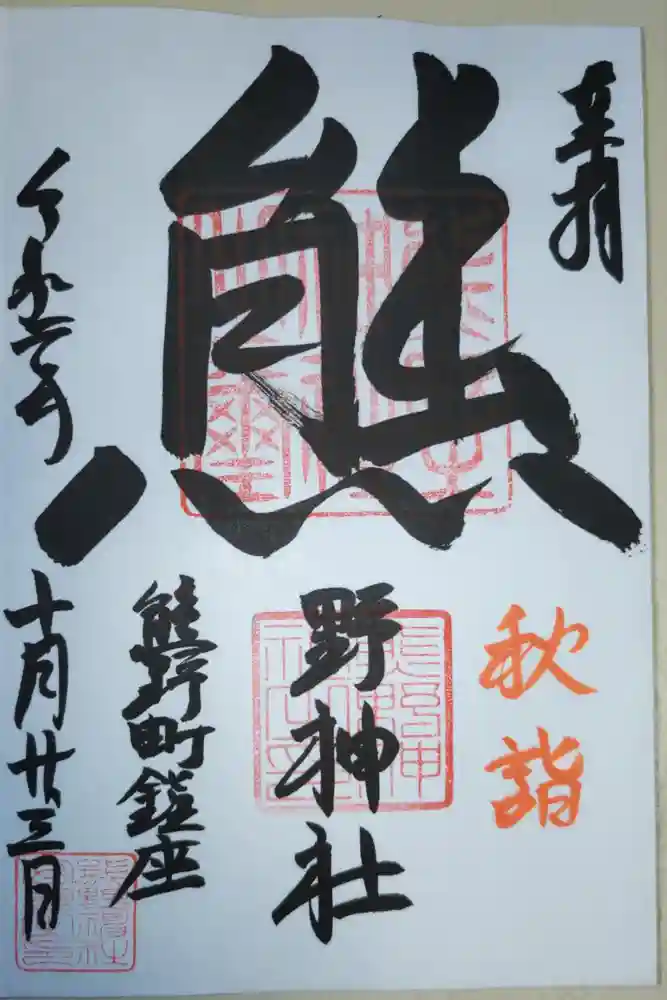 奉拝
秋詣
熊野神社
熊野町鎮座
令和六年十月廿三日